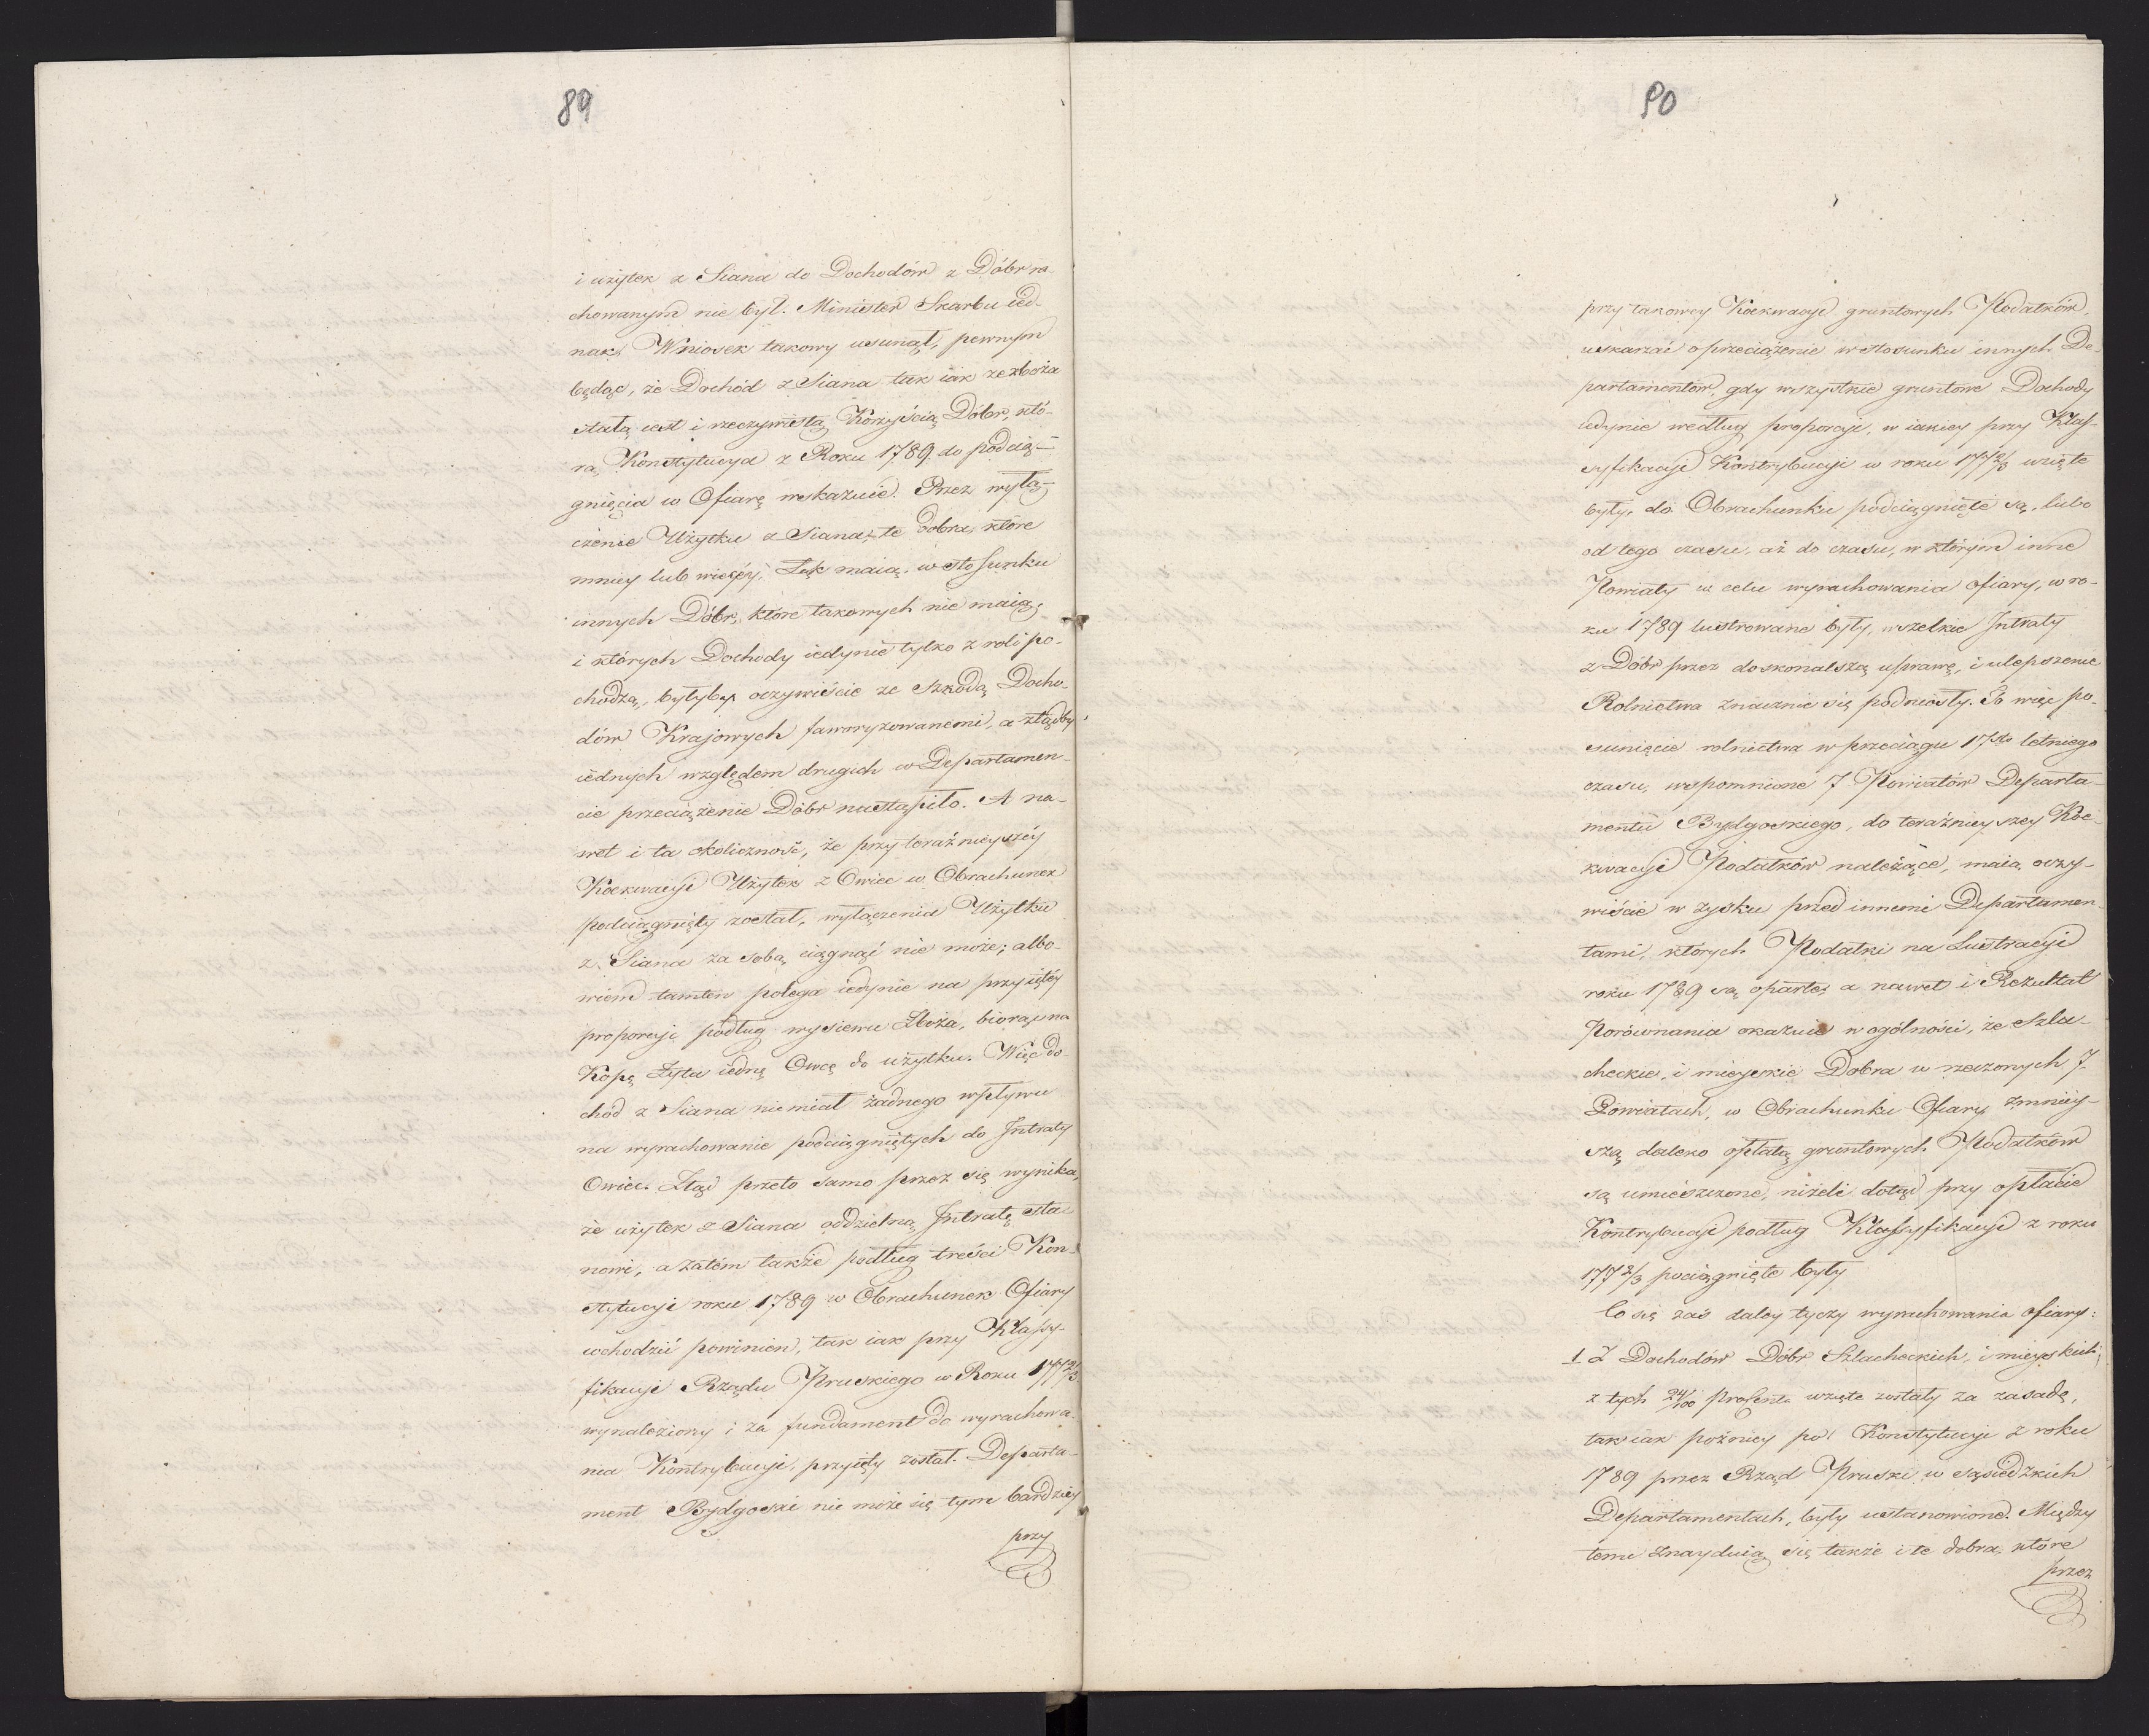 89
i użytek z Siana do Dochodów z Dóbr ra-
chowanym nie był. Minister Skarbu ied-
nak Wniosek takowy usunął, pewnym
będąc, że Dochód z Siana tak iak ze zboża
stałą iest i rzeczywistą Korzyścią Dóbr, któ-
rą Konstytucya z Roku 1789 do podcią-
gnięcia w Ofiarę wskazuie. Przez wyłą-
czenie Użytku z Siana, te dobra, które
mniey lub więcéy Łąk maią, w stosunku
innych Dóbr, które takowych nie maią,
i których Dochody iedynie tylko z roli po-
chodzą, byłyby oczywiście ze szkodą Docho-
dów Krajowych faworyzowanemi, a ztądby
iednych względem drugich w Departamen-
cie przeciążenie Dóbr nastąpiło. A na-
wet i ta okoliczność, że przy teraźnieyszéy
Koekwacyi Użytek z Owiec w Obrachunek
podciągnięty został, wyłączenia Użytku
z Siana za sobą ciągnąć nie może; albo-
wiem tamten polega iedynie na przyiętéy
proporcyi podług wysiewu Zboża, biorąc na
Kopę Żyta iedną Owcę do użytku. Więc do-
chód z Siana niemiał żadnego wpływu
na wyrachowanie podciągniętych do Intraty
Owiec. Ztąd przeto samo przez się wynika,
że użytek z Siana oddzielną Intratę sta-
nowi, a zatém także podług treści Kon-
stytucyi roku 1789 w Obrachunek Ofiary
wchodzić powinien, tak iak przy Klassy-
fikacyi Rządu Pruskiego w Roku 1772/3
wynaleziony i za fundament do wyrachowa-
nia Kontrybucyi, przyięty został. Departa-
ment Bydgoski nie może się tym bardziey
przy
90
przy takowey Koekwacyi gruntowych Podatków,
uskarżać o przeciążenie w stosunku innych De-
partamentów, gdy wszystkie gruntowe Dochody
iedynie według proporcyi, w iakiey przy Klas-
syfikacyi Kontrybucyi w roku 1772/3 wzięte
były, do Obrachunku podciągnięte są, lubo
od tego czasu, aż do czasu, w którym inne
Powiaty w celu wyrachowania ofiary, w ro-
ku 1789 lustrowane były, wszelkie Intraty
z Dóbr przez doskonalszą uprawę, i ulepszenie
Rolnictwa znacznie się podniosły. To więc po-
sunięcie rolnictwa w przeciągu 17sto letniego
czasu, wspomnione 7 Powiatów Departa-
mentu Bydgoskiego, do teraźnieyszey Koe-
kwacyi Podatków należące, maią oczy-
wiście w zysku przed innemi Departamen-
tami, których Podatki na Lustracyi
roku 1789 są oparte; a nawet i Rezultat
Porównania okazuie w ogólności, że szla-
checkie, i mieyskie Dobra w rzeczonych 7
Powiatach, w Obrachunku Ofiary zmniey-
szą daleko opłatą gruntowych Podatków
są umieszczone, niżeli dotąd przy opłacie
Kontrybucyi podług Klassyfikacyi z roku
1772/3 pociągnięte były
Co się zaś daley tyczy wyrachowania ofiary:
1 Z Dochodów Dóbr Szlacheckich, i mieyskich;
z tych 24/100 procent wzięte zostały za zasadę,
tak iak poźniey po Konstytucyi z roku
1789 przez Rząd Pruski w sąsiedzkich
Departamentach, były ustanowione. Między
temi znayduią się także i te dobra, które
przez